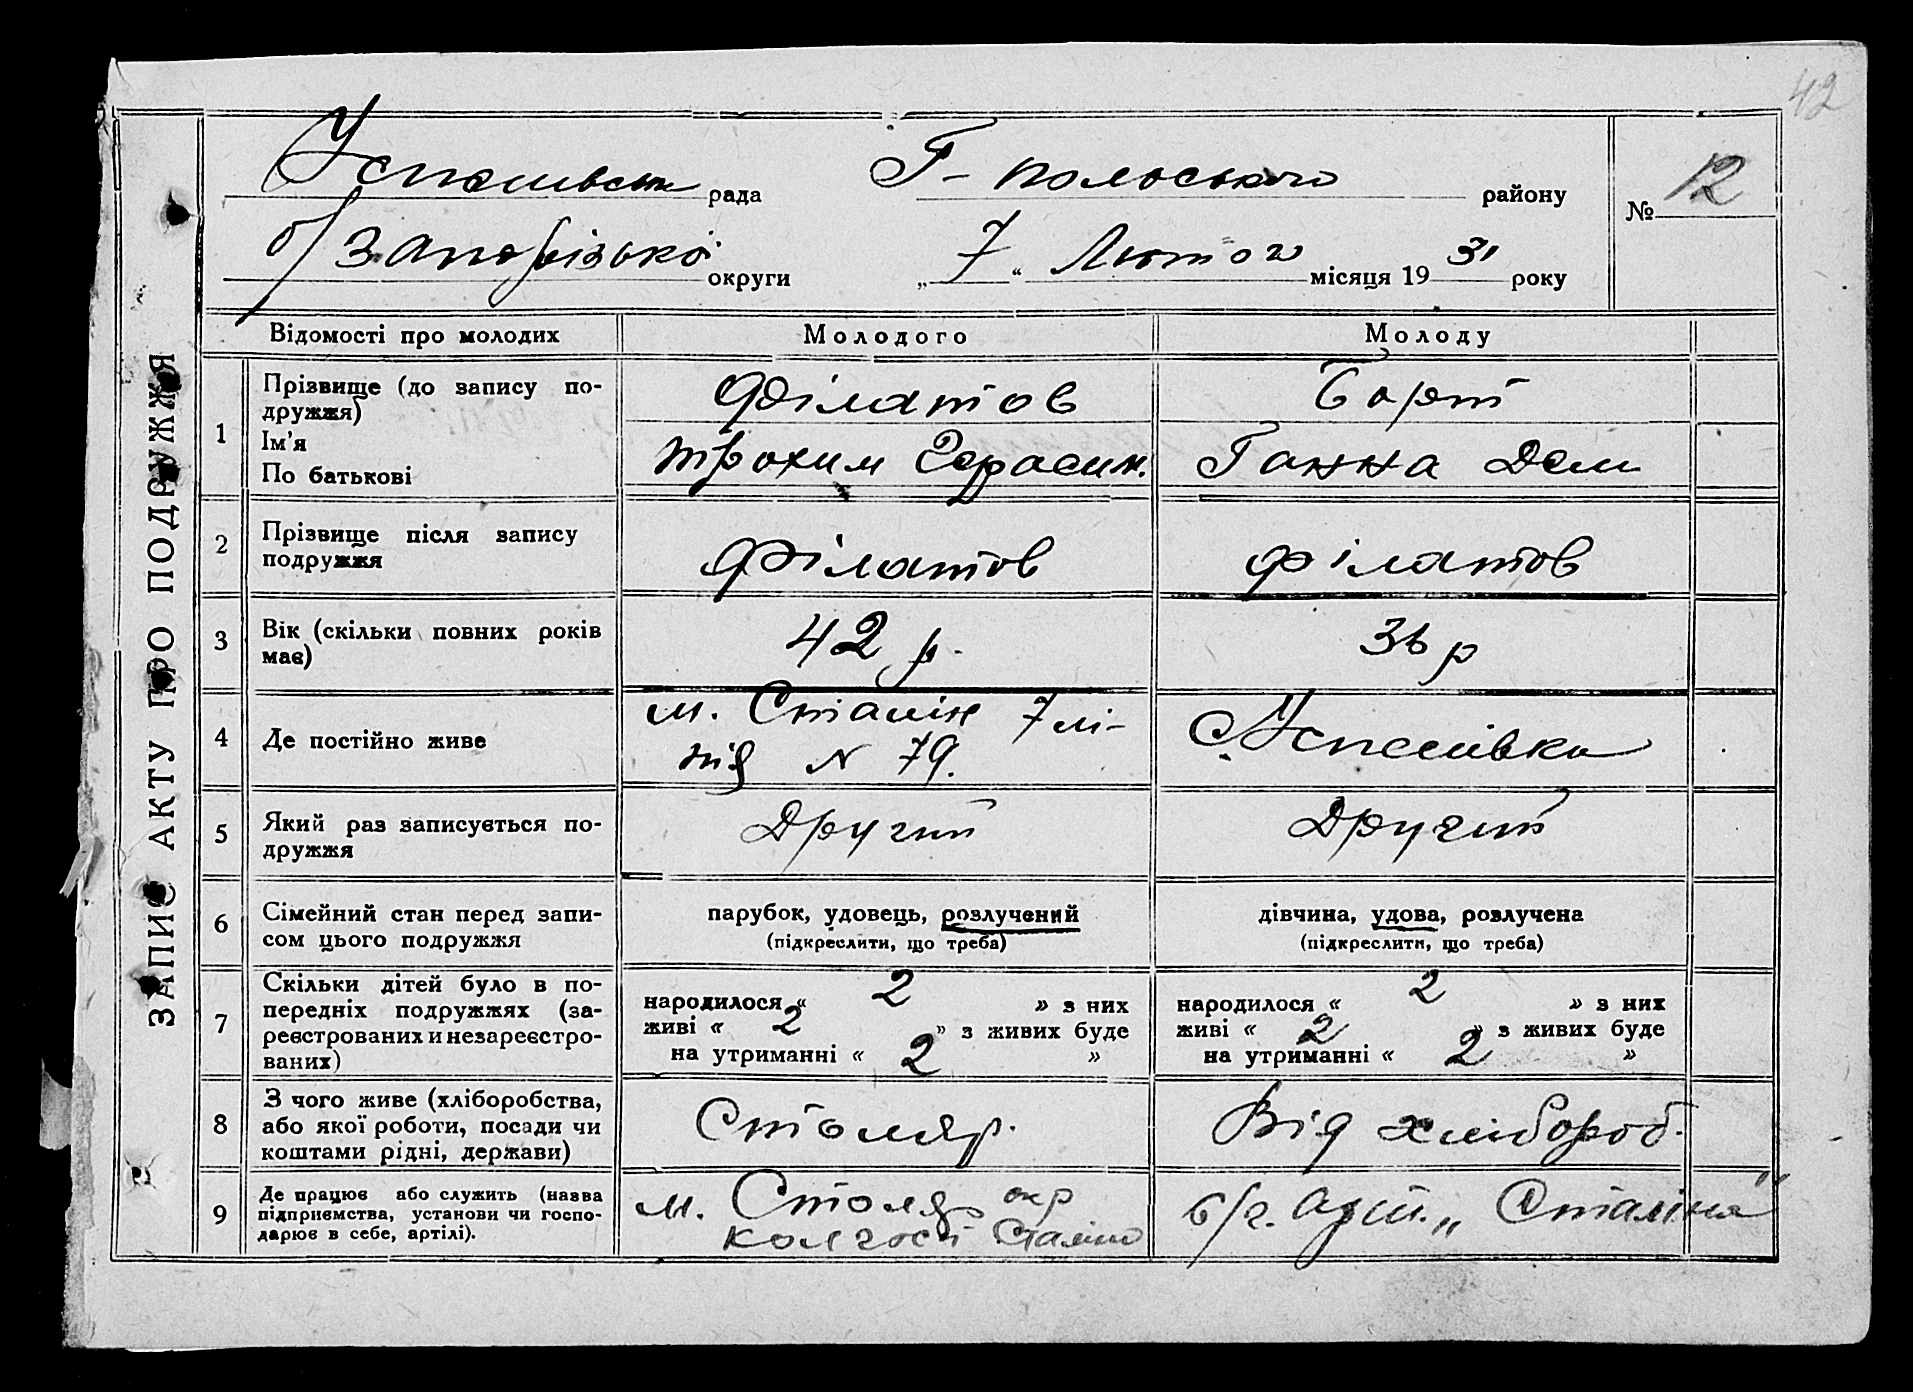 42
ЗАПИС АКТУ ПРО ПОДРУЖЖЯ
Успенівськ рада Г-полюського району
№ 12
б/Запорізької округи „7“ Лютого місяця 1931 року
Відомості про молодих Молодого Молоду
1 Прізвище (до запису по-
дружжя) Філатов Борт
Ім'я
По батькові Трохим Герасим. Ганна Дем
2 Прізвище після запису
подружжя Філатов Філатов
3 Вік (скільки повних років
має) 42 р. 36 р
4 Де постійно живе м. Сталін 7 лі-
нія N 79. С. Успенівка
5 Який раз записується по-
дружжя Другий Другий
6 Сімейний стан перед запи-
сом цього подружжя парубок, удовець, розлучений
(підкреслити, що треба) дівчина, удова, розлучена
(підкреслити, що треба)
7 Скільки дітей було в по-
передніх подружжях (за-
реєстрованих и незареєстро-
ваних) народилося « 2 » з них
живі « 2 » з живих буде
на утриманні « 2 »
народилося « 2 » з них
живі « 2 » з живих буде
на утриманні « 2 »
8 З чого живе (хліборобства,
або якої роботи, посади чи
коштами рідні, держави) Столяр. Від хлібороб.
9 Де працює або служить (назва
підприємства, установи чи госпо-
дарює в себе, артілі). м. Столяр окр
колгосп Сталіно с/г. арт. „Сталіна"